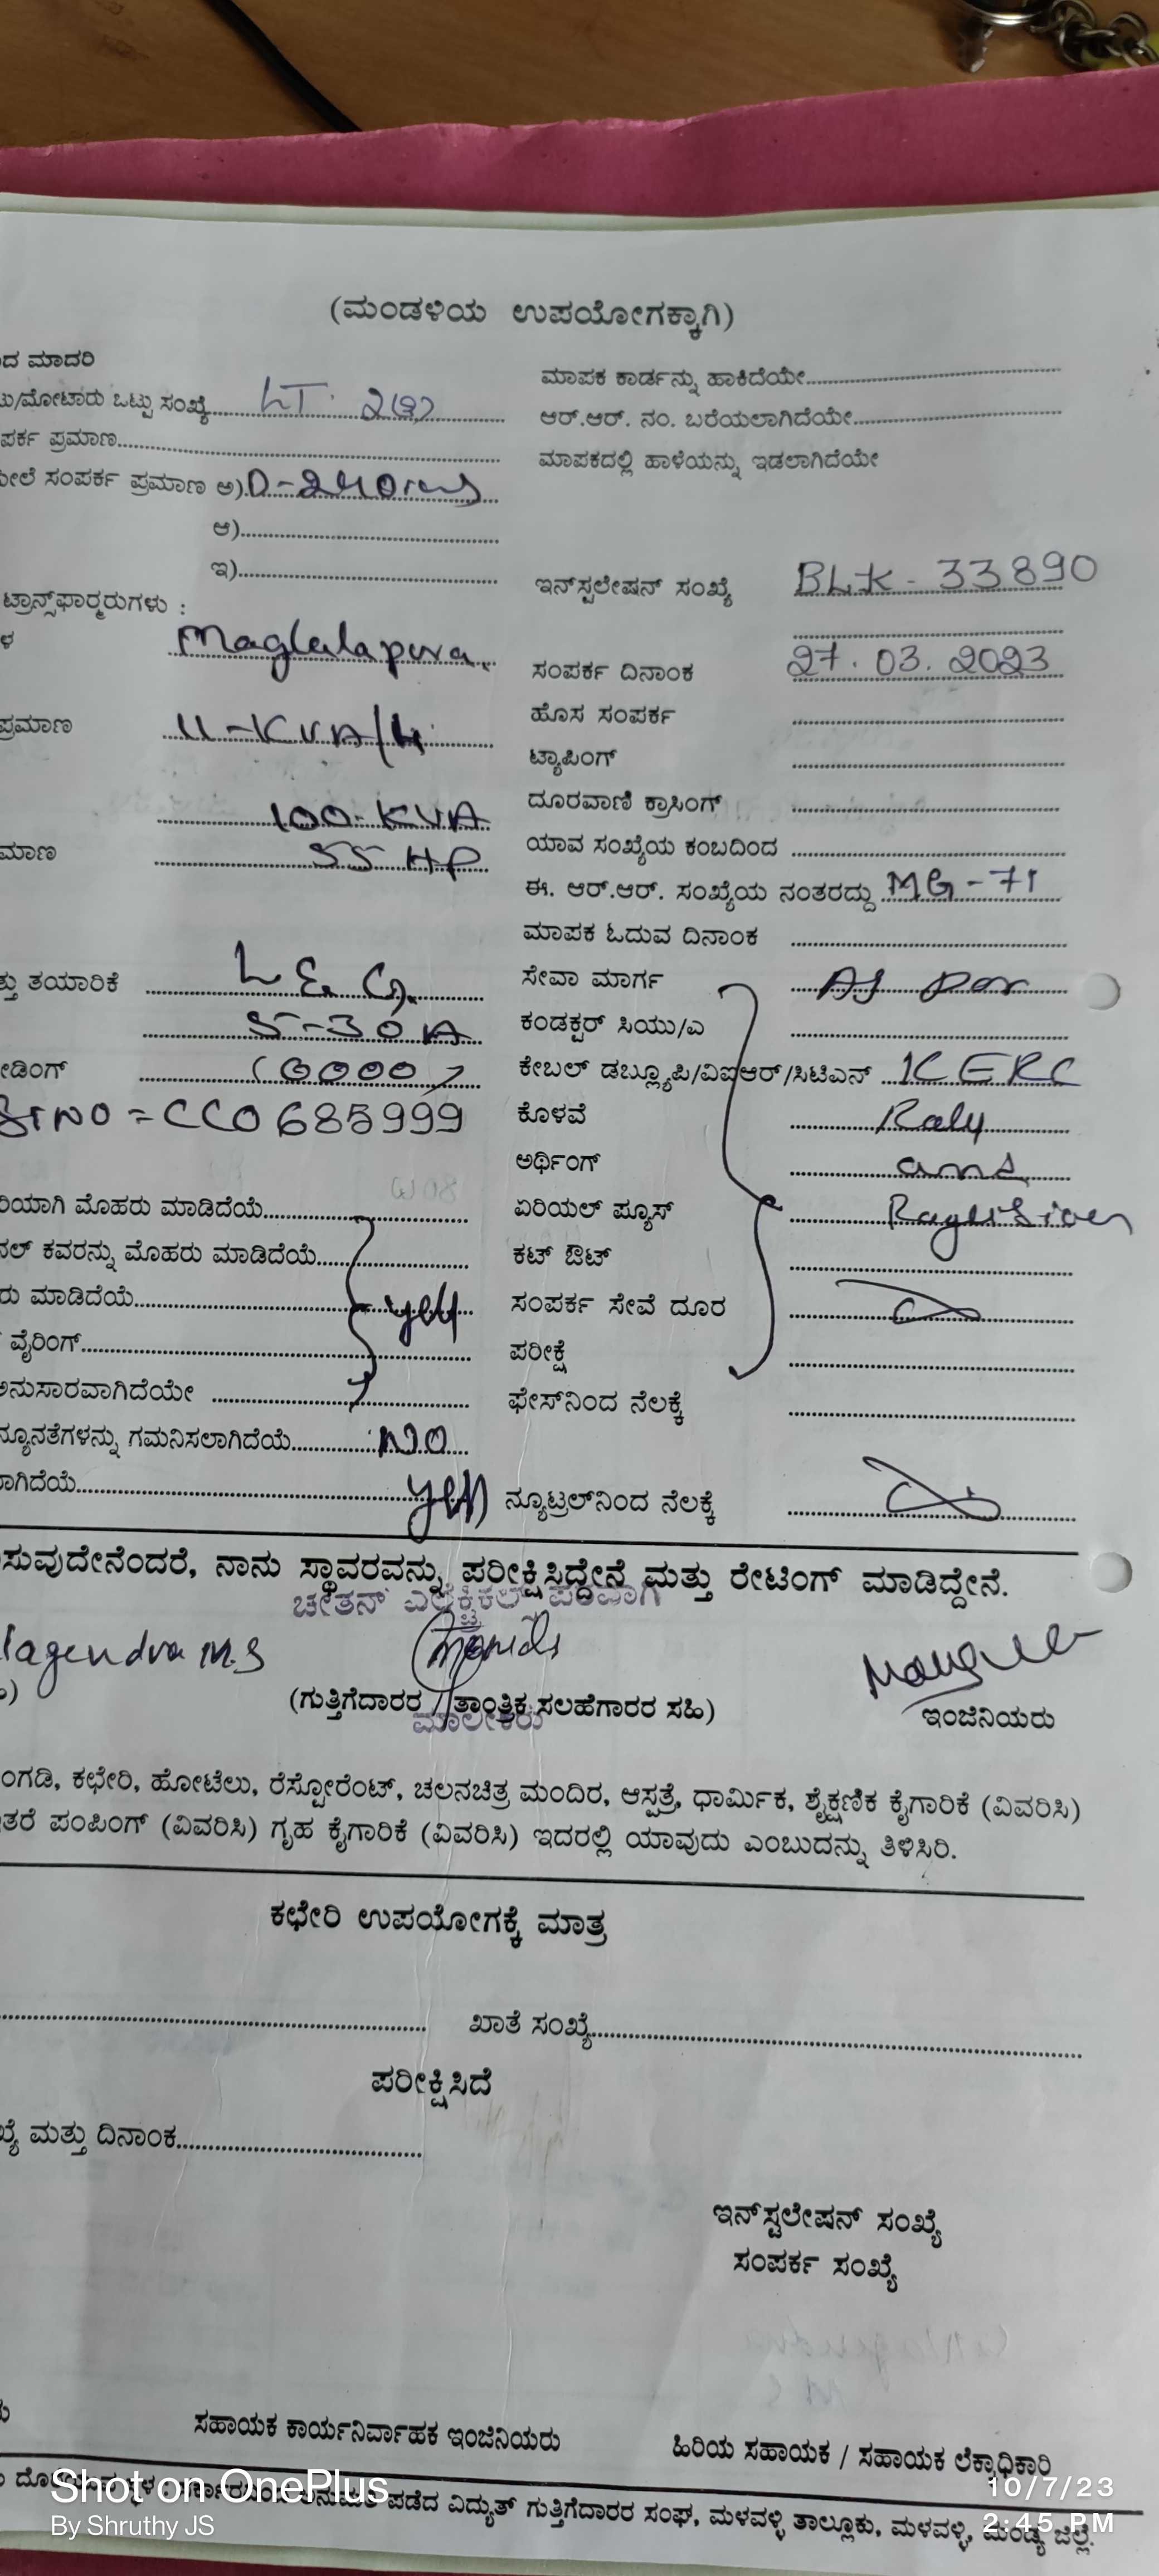 (ಮಂಡಳಿಯ ಉಪಯೋಗಕ್ಕಾಗಿ)
ದ ಮಾದರಿ
ಮಾಪಕ ಕಾರ್ಡನ್ನು ಹಾಕಿದೆಯೇ
ು/ಮೋಟಾರು ಒಟ್ಟು ಸಂಖ್ಯೆ LT.
ಆರ್.ಆರ್. ನಂ. ಬರೆಯಲಾಗಿದೆಯೇ
ಪರ್ಕ ಪ್ರಮಾಣ
ಮಾಪಕದಲ್ಲಿ ಹಾಳೆಯನ್ನು ಇಡಲಾಗಿದೆಯೇ
ಮೇಲೆ ಸಂಪರ್ಕ ಪ್ರಮಾಣ ಅ)
ಆ)
ಇ)
ಇನ್‌ಸ್ಪಲೇಷನ್ ಸಂಖ್ಯೆ BLK - 33890
ಟ್ರಾನ್ಸ್‌ಫಾರ್‍ಮರುಗಳು :
ಳ Maglalapura.
ಸಂಪರ್ಕ ದಿನಾಂಕ 27.03.2023
ಹೊಸ ಸಂಪರ್ಕ
ಪ್ರಮಾಣ 11-KVA/
ಟ್ಯಾಪಿಂಗ್
100-KVA
ದೂರವಾಣಿ ಕ್ರಾಸಿಂಗ್
ಮಾಣ 55 HP
ಯಾವ ಸಂಖ್ಯೆಯ ಕಂಬದಿಂದ
ಈ. ಆರ್.ಆರ್. ಸಂಖ್ಯೆಯ ನಂತರದ್ದು MG-71
ಮಾಪಕ ಓದುವ ದಿನಾಂಕ
ತ್ತು ತಯಾರಿಕೆ L & G.
ಸೇವಾ ಮಾರ್ಗ As per
5-30A
ಕಂಡಕ್ಟರ್ ಸಿಯು/ಎ
ೇಡಿಂಗ್ (0000)
ಕೇಬಲ್ ಡಬ್ಲ್ಯೂಪಿ/ವಿಐಆರ್/ಸಿಟಿಎನ್ KERC
SINO = CC0685999
ಕೊಳವೆ Raly
ಅರ್ಥಿಂಗ್ and
ರಿಯಾಗಿ ಮೊಹರು ಮಾಡಿದೆಯೆ
ಏರಿಯಲ್ ಫ್ಯೂಸ್
ನಲ್ ಕವರನ್ನು ಮೊಹರು ಮಾಡಿದೆಯೆ
ಕಟ್ ಔಟ್
ರು ಮಾಡಿದೆಯೆ yes
ಸಂಪರ್ಕ ಸೇವೆ ದೂರ
ವೈರಿಂಗ್
ಪರೀಕ್ಷೆ
ಅನುಸಾರವಾಗಿದೆಯೇ
ಫೇಸ್‌ನಿಂದ ನೆಲಕ್ಕೆ
ನ್ಯೂನತೆಗಳನ್ನು ಗಮನಿಸಲಾಗಿದೆಯೆ NO
ಲಾಗಿದೆಯೆ yes
ನ್ಯೂಟ್ರಲ್‌ನಿಂದ ನೆಲಕ್ಕೆ
ಸುವುದೇನೆಂದರೆ, ನಾನು ಸ್ಥಾವರವನ್ನು ಪರೀಕ್ಷಿಸಿದ್ದೇನೆ ಮತ್ತು ರೇಟಿಂಗ್ ಮಾಡಿದ್ದೇನೆ.
ಚೇತನ್ ಎಲೆಕ್ಟ್ರಿಕಲ್ ಪರವಾಗಿ
agendra M.S
(ಗುತ್ತಿಗೆದಾರರ / ತಾಂತ್ರಿಕ ಸಲಹೆಗಾರರ ಸಹಿ)
ಮಾಲೀಕರು
ಇಂಜಿನಿಯರು
ಂಗಡಿ, ಕಛೇರಿ, ಹೋಟೆಲು, ರೆಸ್ಟೋರೆಂಟ್, ಚಲನಚಿತ್ರ ಮಂದಿರ, ಆಸ್ಪತ್ರೆ, ಧಾರ್ಮಿಕ, ಶೈಕ್ಷಣಿಕ ಕೈಗಾರಿಕೆ (ವಿವರಿಸಿ)
ತರೆ ಪಂಪಿಂಗ್ (ವಿವರಿಸಿ) ಗೃಹ ಕೈಗಾರಿಕೆ (ವಿವರಿಸಿ) ಇದರಲ್ಲಿ ಯಾವುದು ಎಂಬುದನ್ನು ತಿಳಿಸಿರಿ.
ಕಛೇರಿ ಉಪಯೋಗಕ್ಕೆ ಮಾತ್ರ
ಖಾತೆ ಸಂಖ್ಯೆ
ಪರೀಕ್ಷಿಸಿದೆ
ಖ್ಯೆ ಮತ್ತು ದಿನಾಂಕ
ಇನ್‌ಸ್ಟಲೇಷನ್ ಸಂಖ್ಯೆ
ಸಂಪರ್ಕ ಸಂಖ್ಯೆ
ಸಹಾಯಕ ಕಾರ್ಯನಿರ್ವಾಹಕ ಇಂಜಿನಿಯರು
ಹಿರಿಯ ಸಹಾಯಕ / ಸಹಾಯಕ ಲೆಕ್ಕಾಧಿಕಾರಿ
ಪಡೆದ ವಿದ್ಯುತ್ ಗುತ್ತಿಗೆದಾರರ ಸಂಘ, ಮಳವಳ್ಳಿ ತಾಲ್ಲೂಕು, ಮಳವಳ್ಳಿ, ಮಂಡ್ಯ ಜಿಲ್ಲೆ.
Shot on OnePlus
By Shruthy JS
10/7/23
2:45 PM